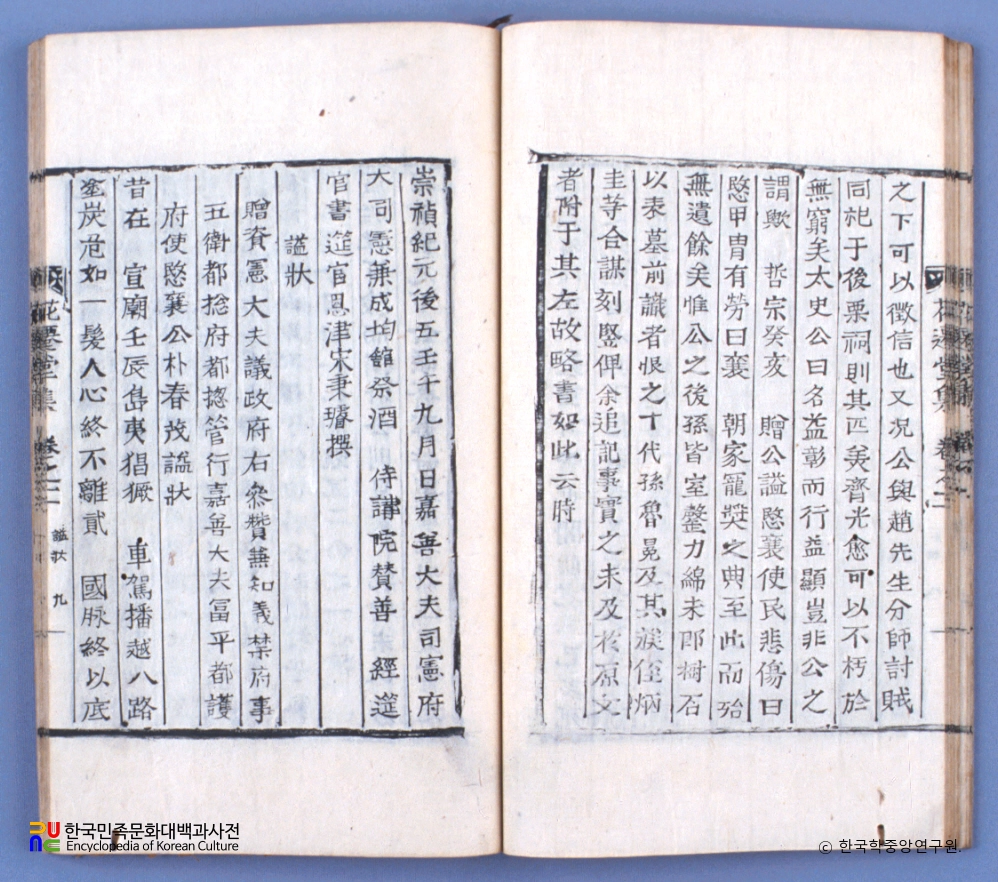 之下可以徵信也又况公與趙先生分師討賊
同祀于後栗祠則其匹美齊光愈可以不朽於
無窮矣太史公曰名益彰而行益顯豈非公之
謂歟 哲宗癸亥 贈公諡愍襄使民悲傷曰
愍甲胄有勞曰襄 朝家寵奬之典至此而殆
無遺餘矣惟公之後孫皆室罄力綿未卽樹石
以表墓前識者恨之丁代孫魯冕及其族侄炳
圭等合謀刻竪俾余追記事實之未及於原文
者附于其左故略書如此云時
崇禎紀元後五壬午九月日嘉善大夫司憲府
大司憲兼成均館祭酒 侍講院賛善 經筵
官書筵官恩津宋秉璿撰
諡狀
贈資憲大夫議政府右叅賛兼知義禁府事
五衛都捴府都捴管行嘉善大夫富平都護
府使愍襄公朴春茂諡狀
昔在 宣廟壬辰島夷猖獗 車駕播越八路
塗炭危如一髮人心終不離貳 國脉終以底
花遷堂集 卷之二 諡狀 九
한국민족문화대백과사전
Encyclopedia of Korean Culture
© 한국학중앙연구원.